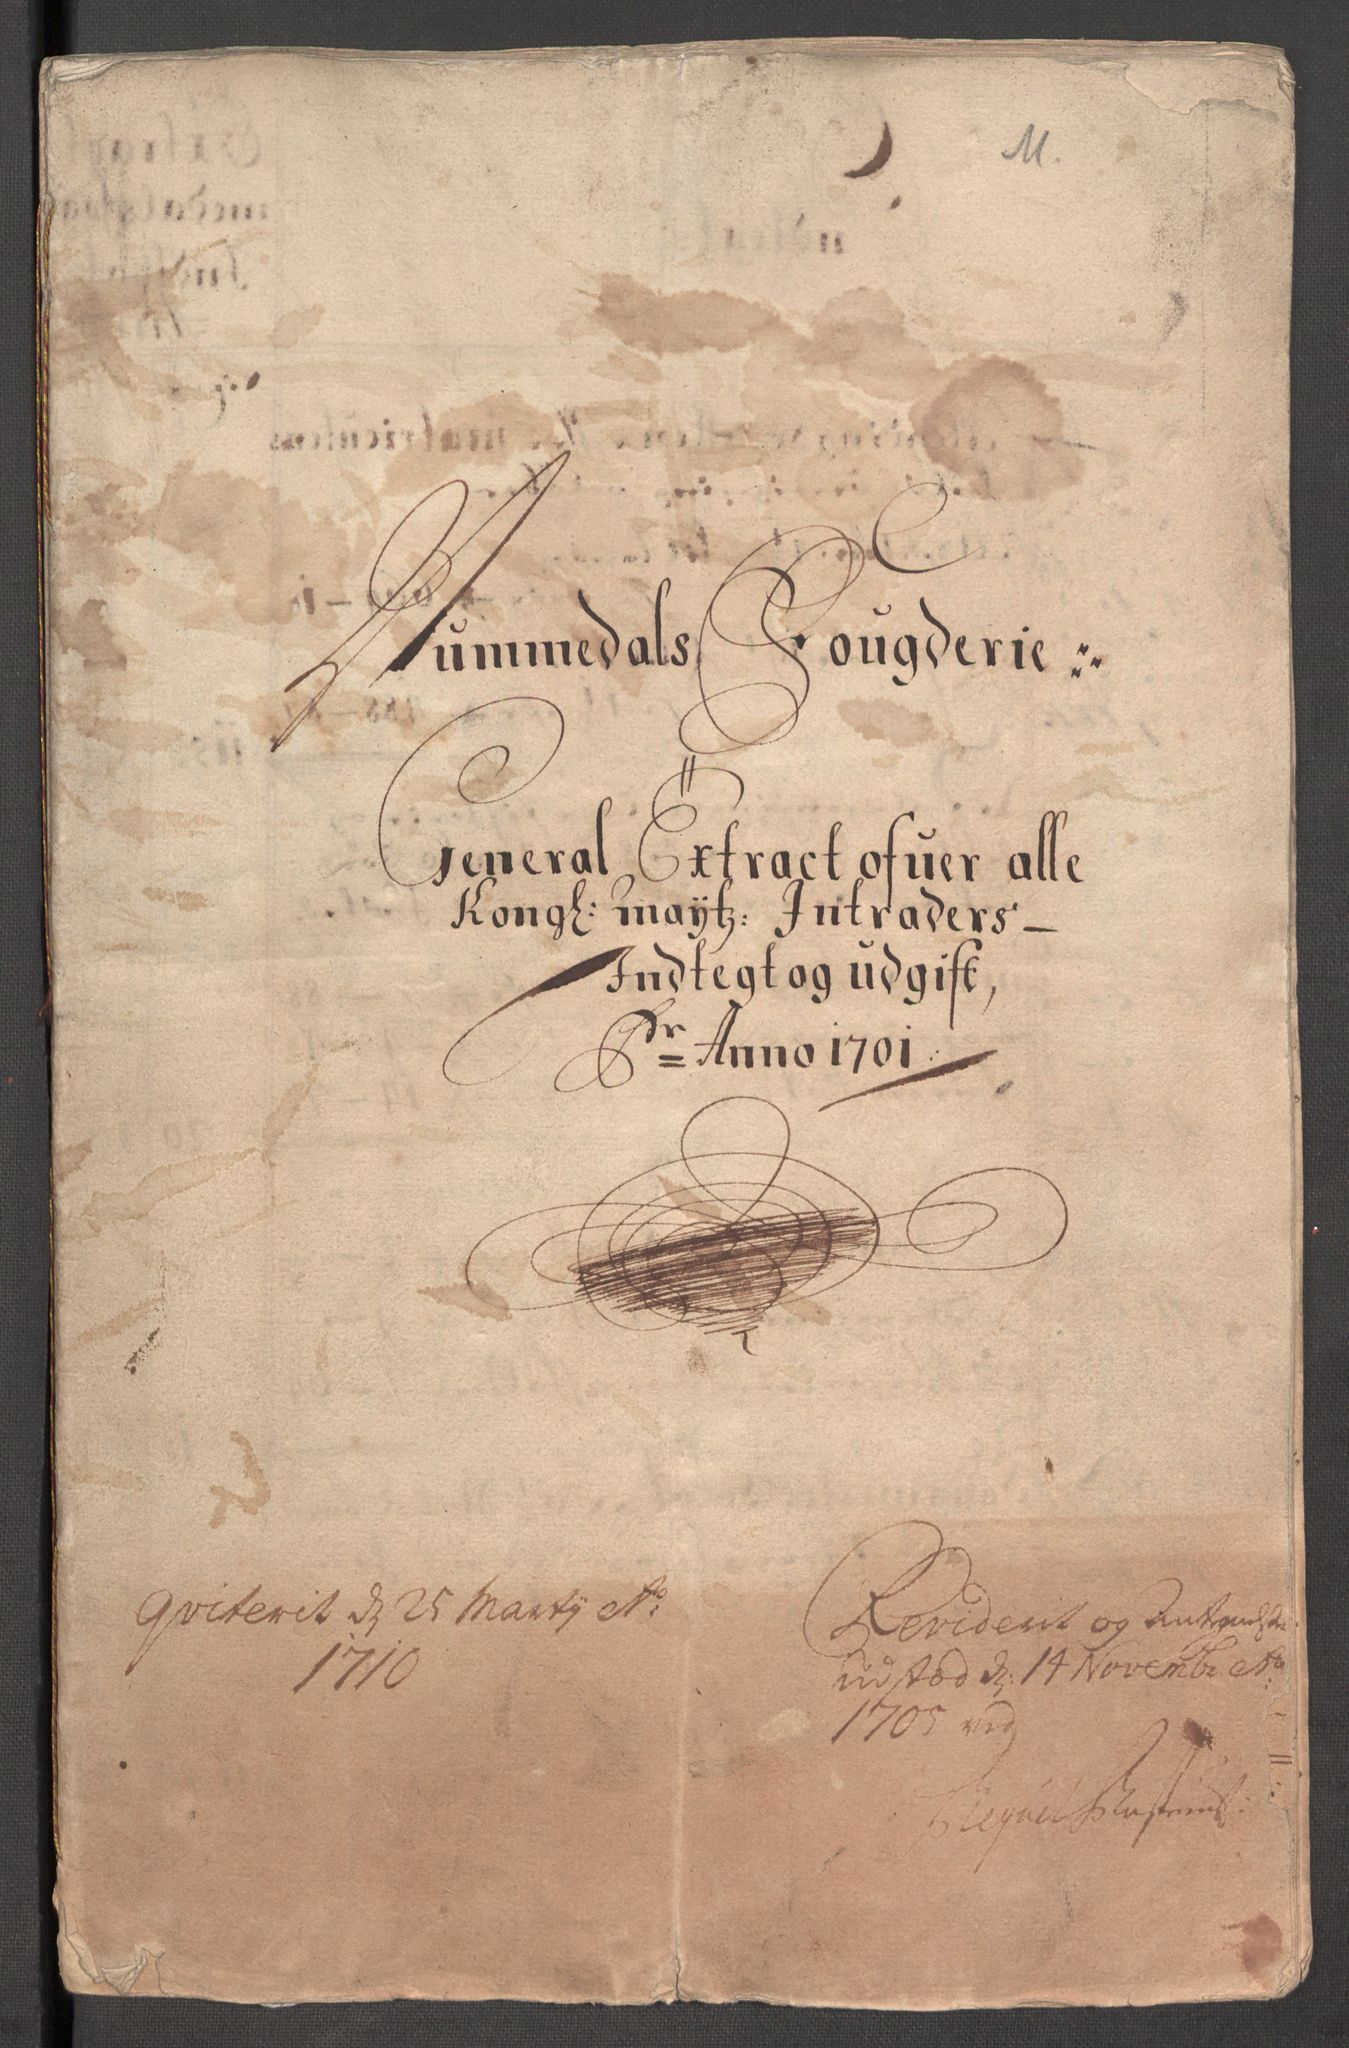 M.
Nummedals Fougderie
General Extract ofuer alle
Kongl: maÿtz: Intraders
Indtegt og udgift,
Pr Anno 1701
Qviterit d 25 Martÿ Ao:
1710
Reviderit og
udstæd d: 14 Novembr Ao:
1705 ved